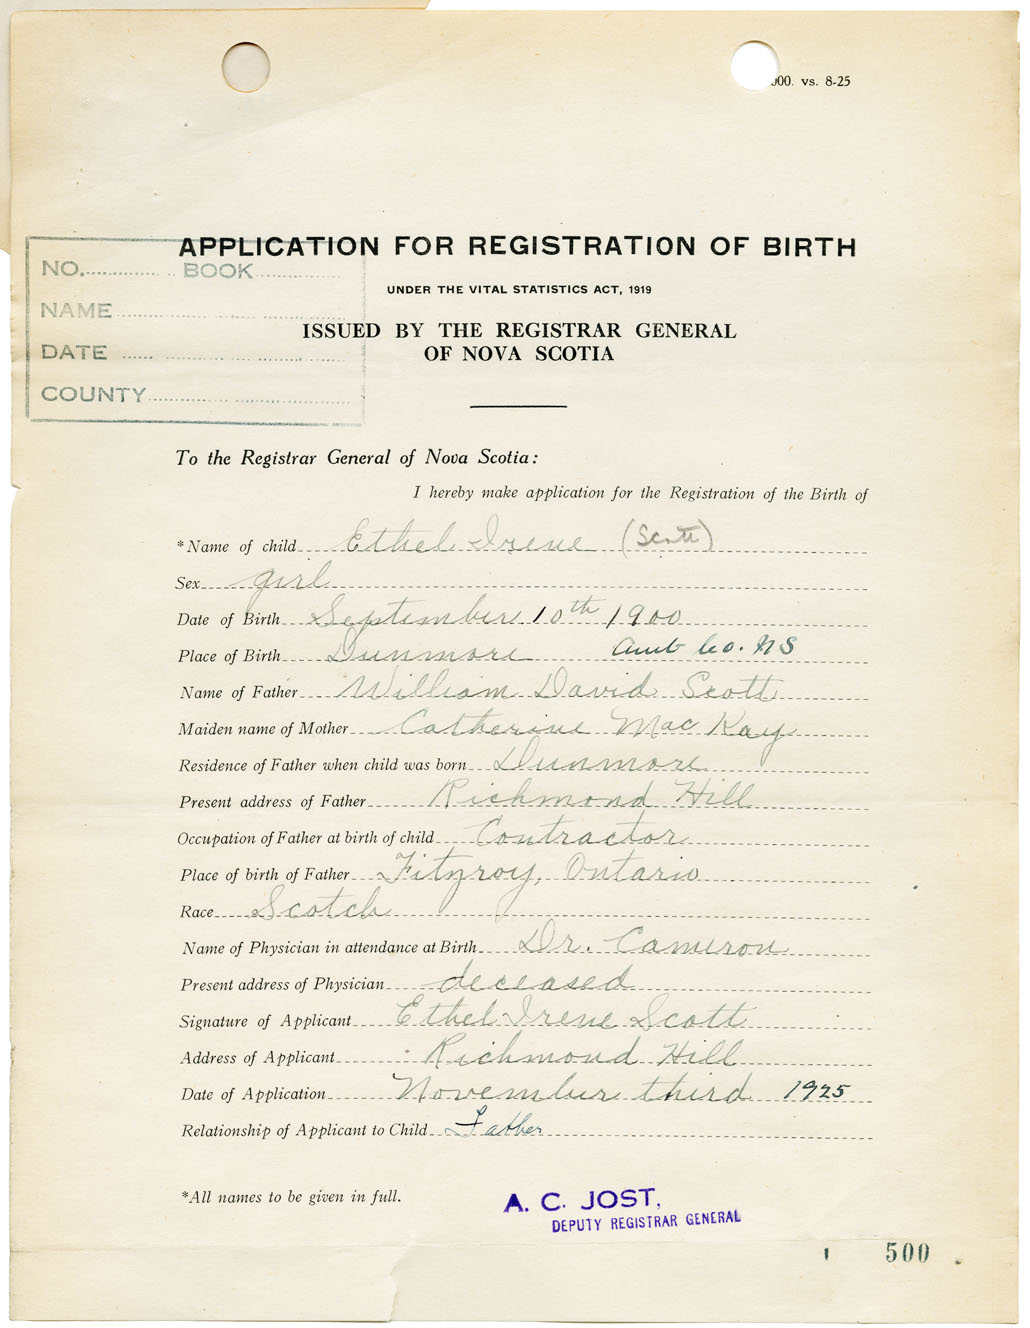 00. vs. 8-25
APPLICATION FOR REGISTRATION OF BIRTH
NO. BOOK
UNDER THE VITAL STATISTICS ACT, 1919
NAME
ISSUED BY THE REGISTRAR GENERAL
DATE
OF NOVA SCOTIA
COUNTY
To the Registrar General of Nova Scotia:
I hereby make application for the Registration of the Birth of
*Name of child Ethel Irene (Scott)
Sex girl
Date of Birth September 10th 1900
Place of Birth Dunmore Ant Co. NS
Name of Father William David Scott
Maiden name of Mother Catherine MacKay
Residence of Father when child was born Dunmore
Present address of Father Richmond Hill
Occupation of Father at birth of child Contractor
Place of birth of Father Fitzroy, Ontario
Race Scotch
Name of Physician in attendance at Birth Dr. Cameron
Present address of Physician deceased
Signature of Applicant Ethel Irene Scott
Address of Applicant Richmond Hill
Date of Application November third 1925
Relationship of Applicant to Child Father
*All names to be given in full.
A. C. JOST,
DEPUTY REGISTRAR GENERAL
500